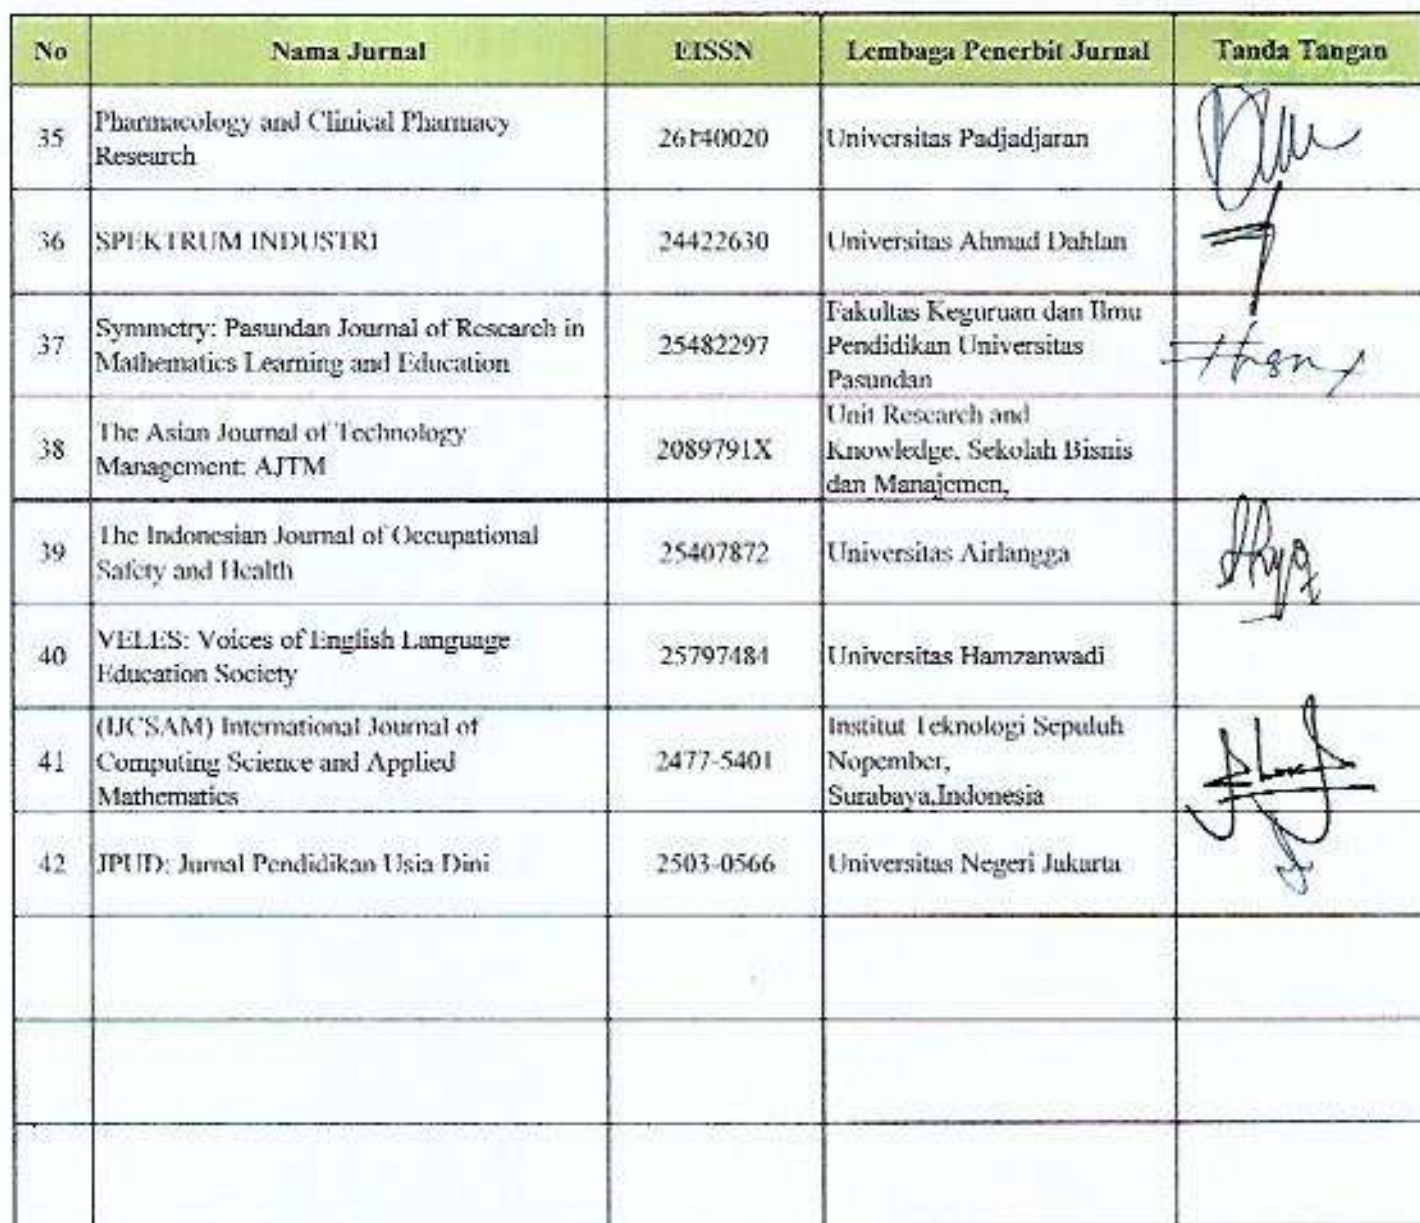 No Nama Jurnal EISSN Lembaga Penerbit Jurnal Tanda Tangan
35 Pharmacology and Clinical Pharmacy Research 26140020 Universitas Padjadjaran
36 SPEKTRUM INDUSTRI 24422630 Universitas Ahmad Dahlan
37 Symmetry: Pasundan Journal of Research in Mathematics Learning and Education 25482297 Fakultas Keguruan dan Ilmu Pendidikan Universitas Pasundan
38 The Asian Journal of Technology Management: AJTM 2089791X Unit Research and Knowledge, Sekolah Bisnis dan Manajemen,
39 The Indonesian Journal of Occupational Safety and Health 25407872 Universitas Airlangga
40 VELES: Voices of English Language Education Society 25797484 Universitas Hamzanwadi
41 (IJCSAM) International Journal of Computing Science and Applied Mathematics 2477-5401 Institut Teknologi Sepuluh Nopember, Surabaya,Indonesia
42 JPUD: Jurnal Pendidikan Usia Dini 2503-0566 Universitas Negeri Jakarta